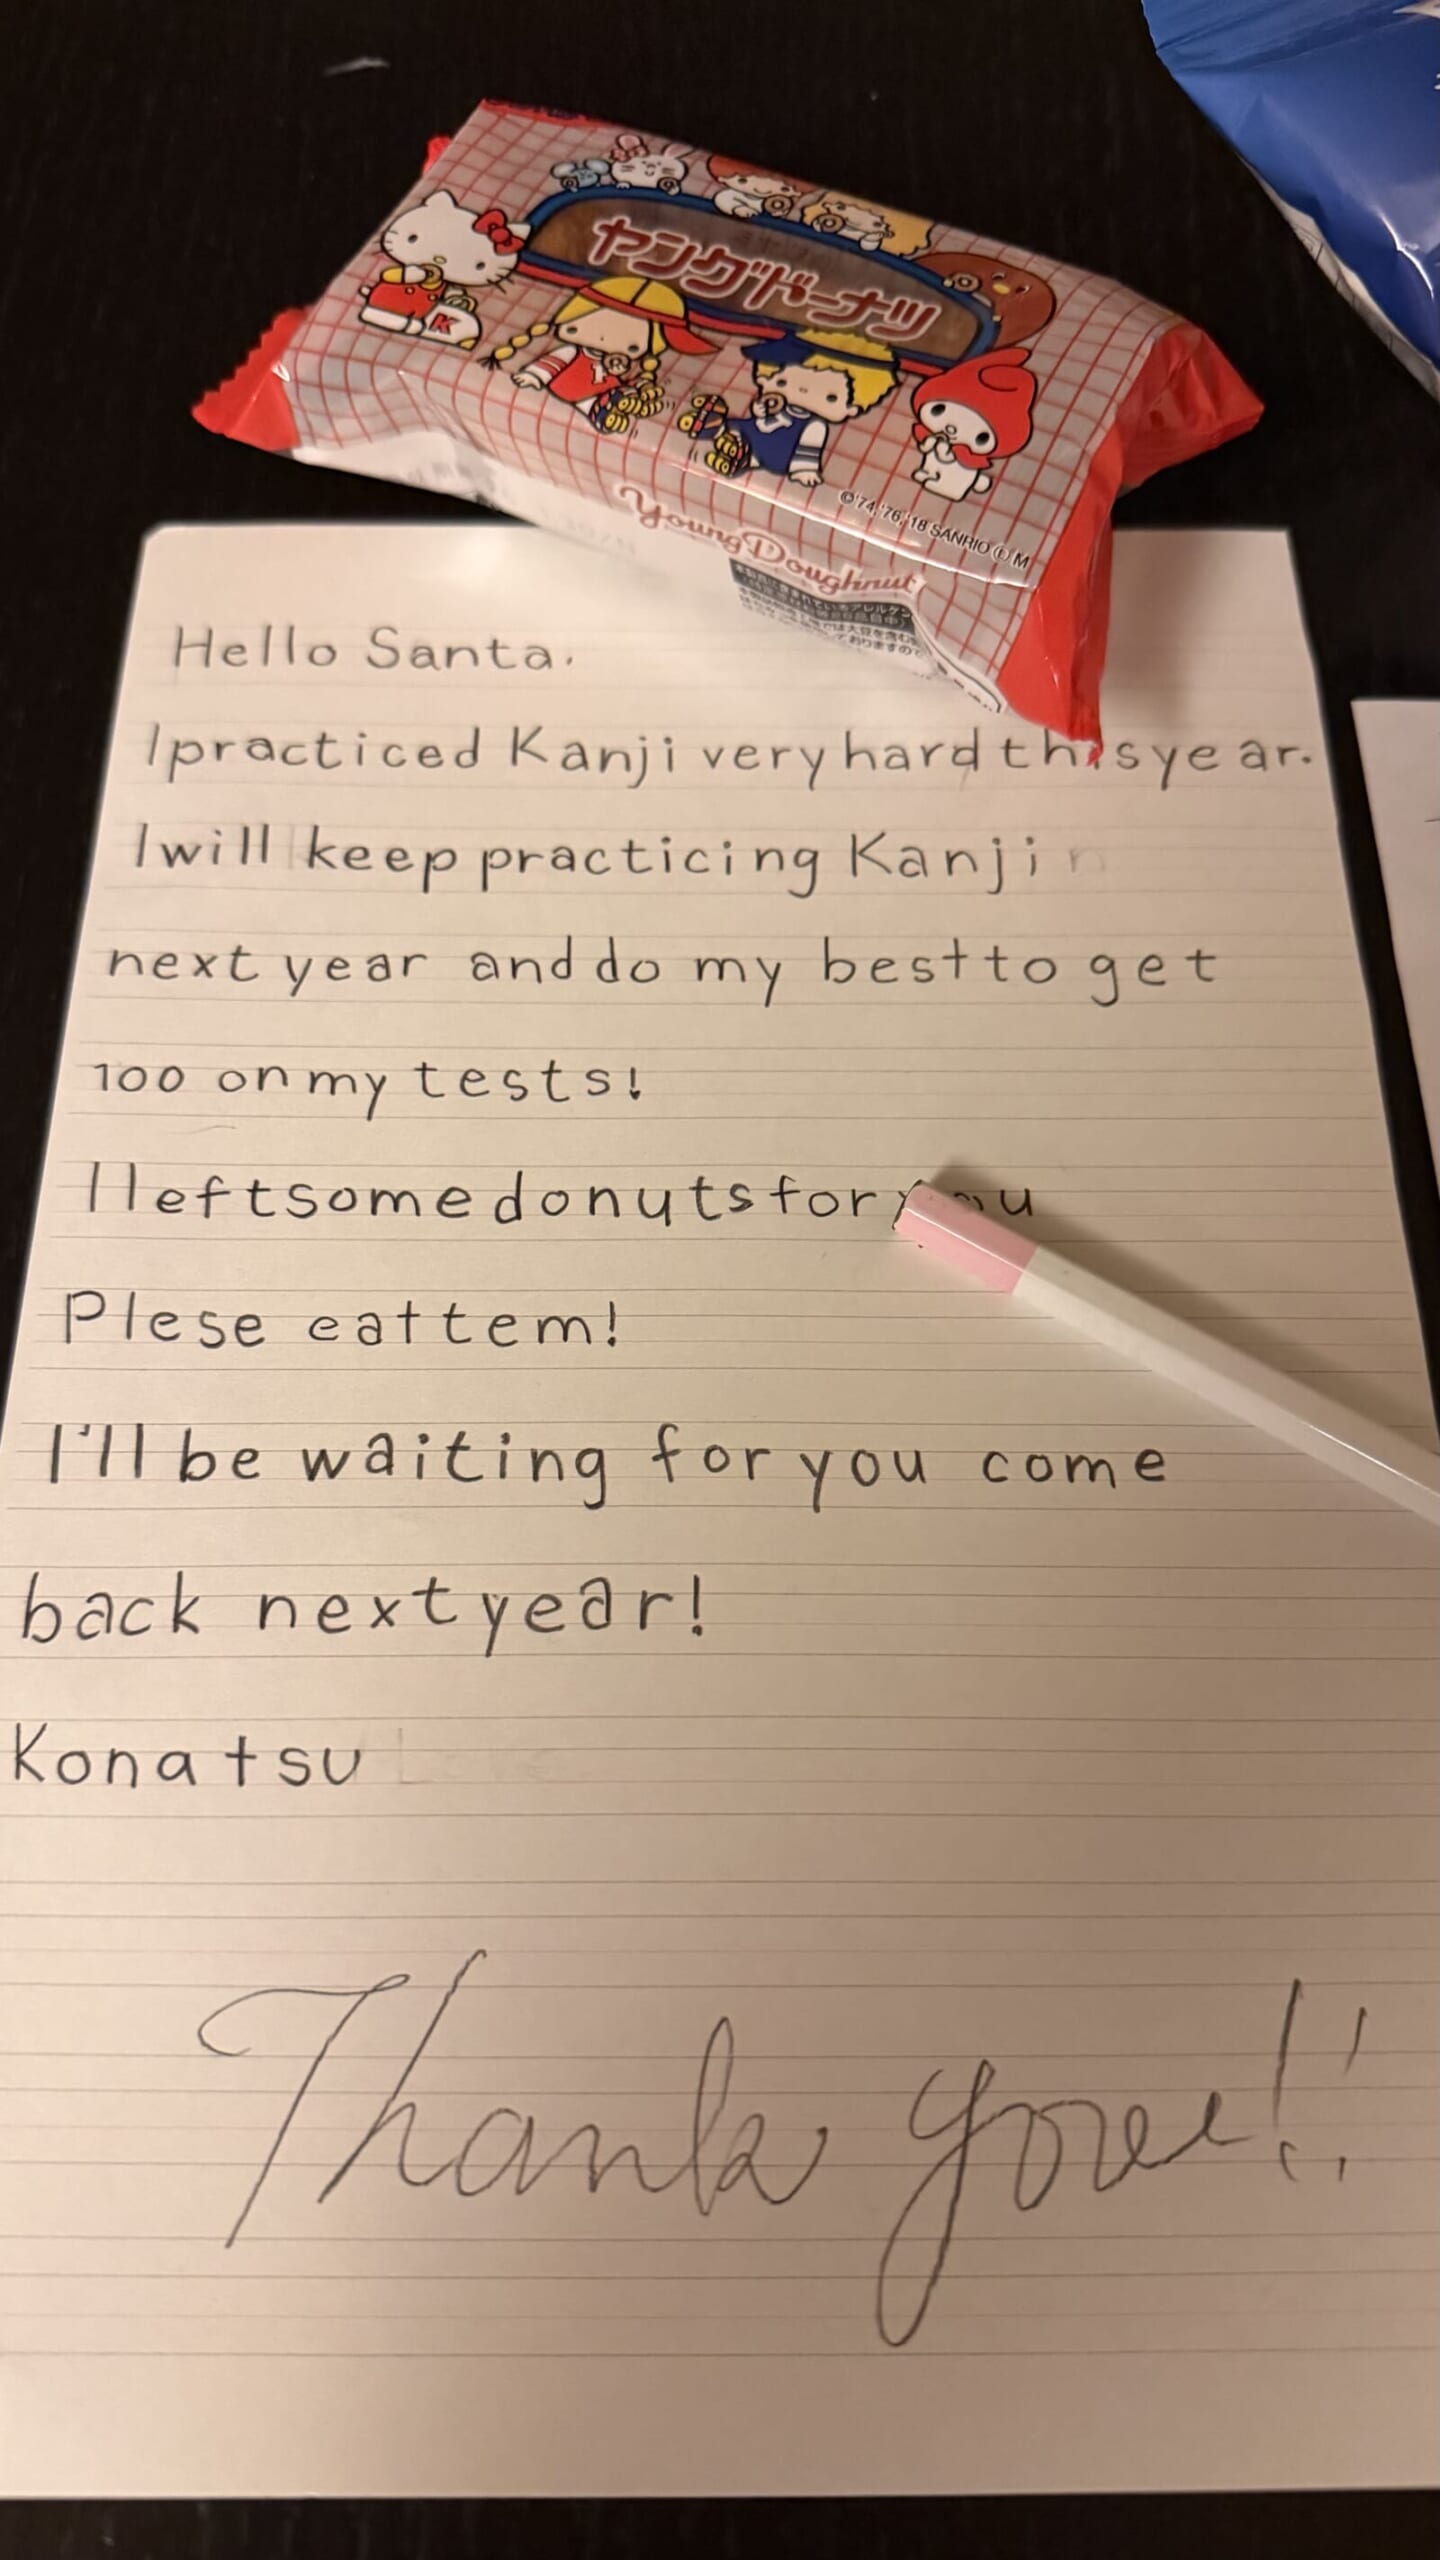 ヤングドーナツ
K
©'74,'76,'18 SANRIO Ⓛ M
Young Doughnut
Hello Santa.
I practiced Kanji very hard this year.
I will keep practicing Kanji
next year and do my best to get
100 on my tests!
I left some donuts for you
Plese eat tem!
I'll be waiting for you come
back next year!
Konatsu
Thank you!!